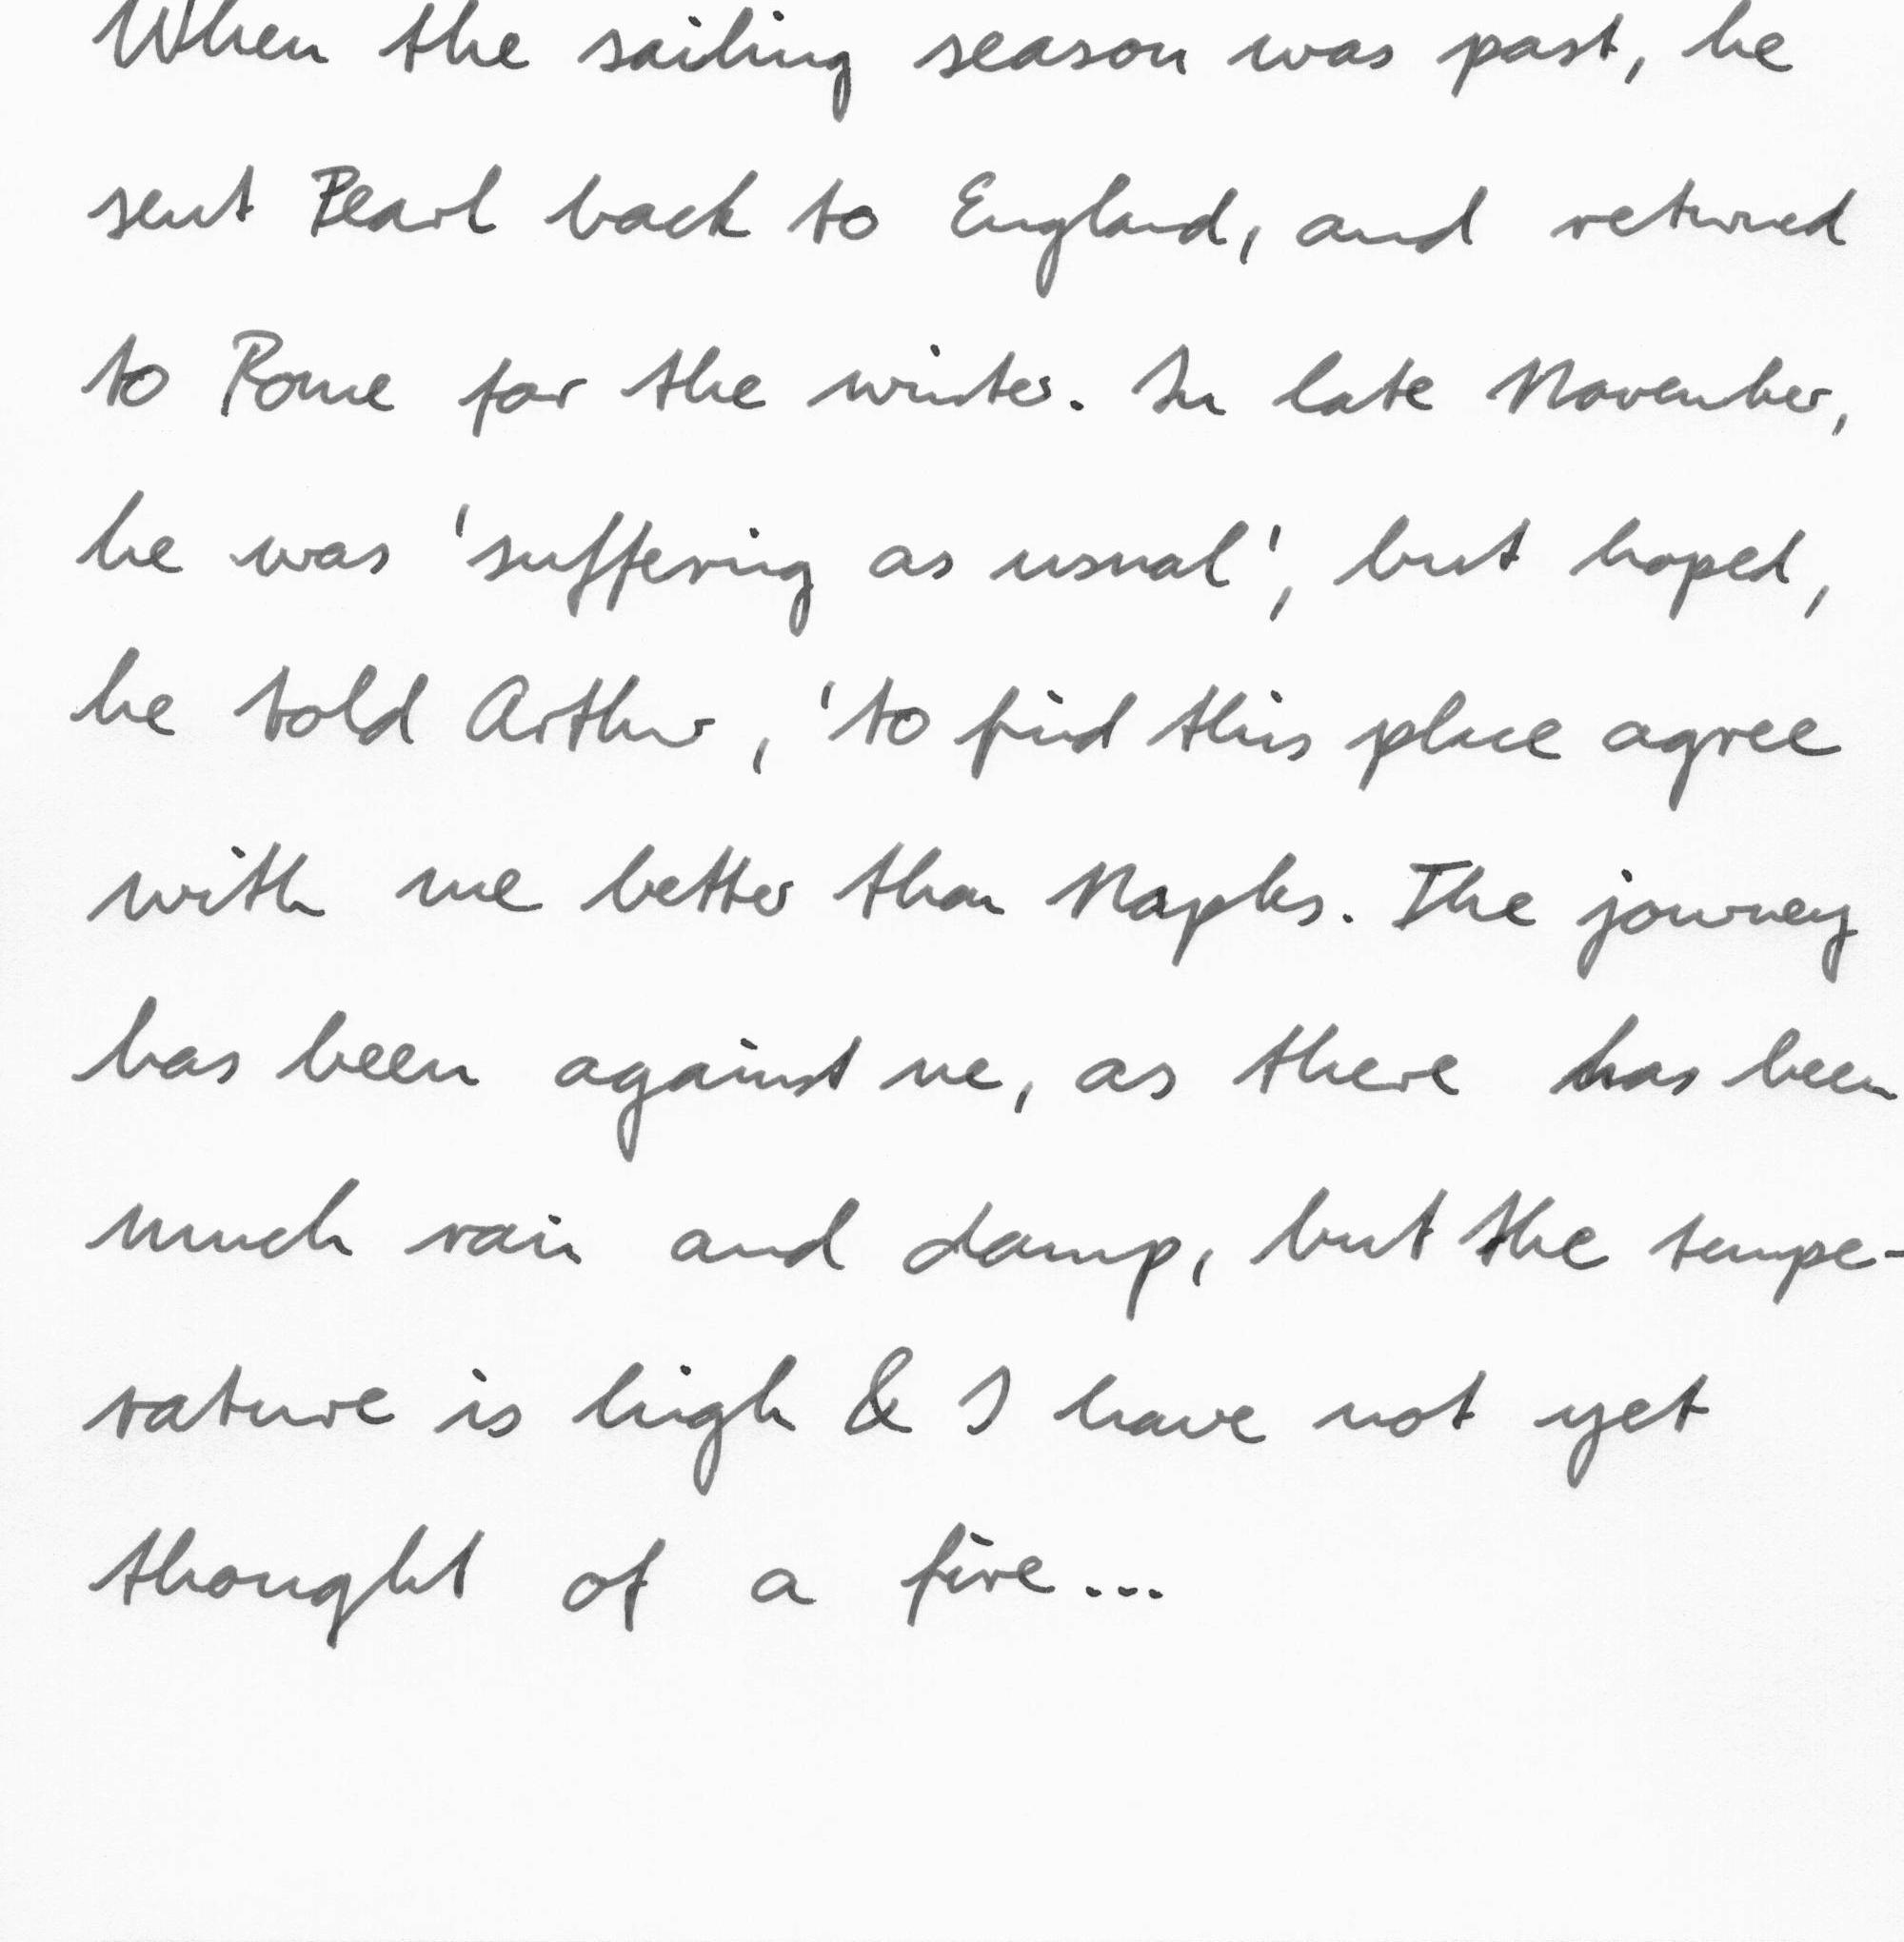 When the sailing season was past, he
sent Pearl back to England, and returned
to Rome for the winter. In late November,
he was 'suffering as usual', but hoped,
he told Arthur, 'to find this place agree
with me better than Naples. The journey
has been against me, as there has been
much rain and damp, but the tempe-
rature is high & I have not yet
thought of a fire...